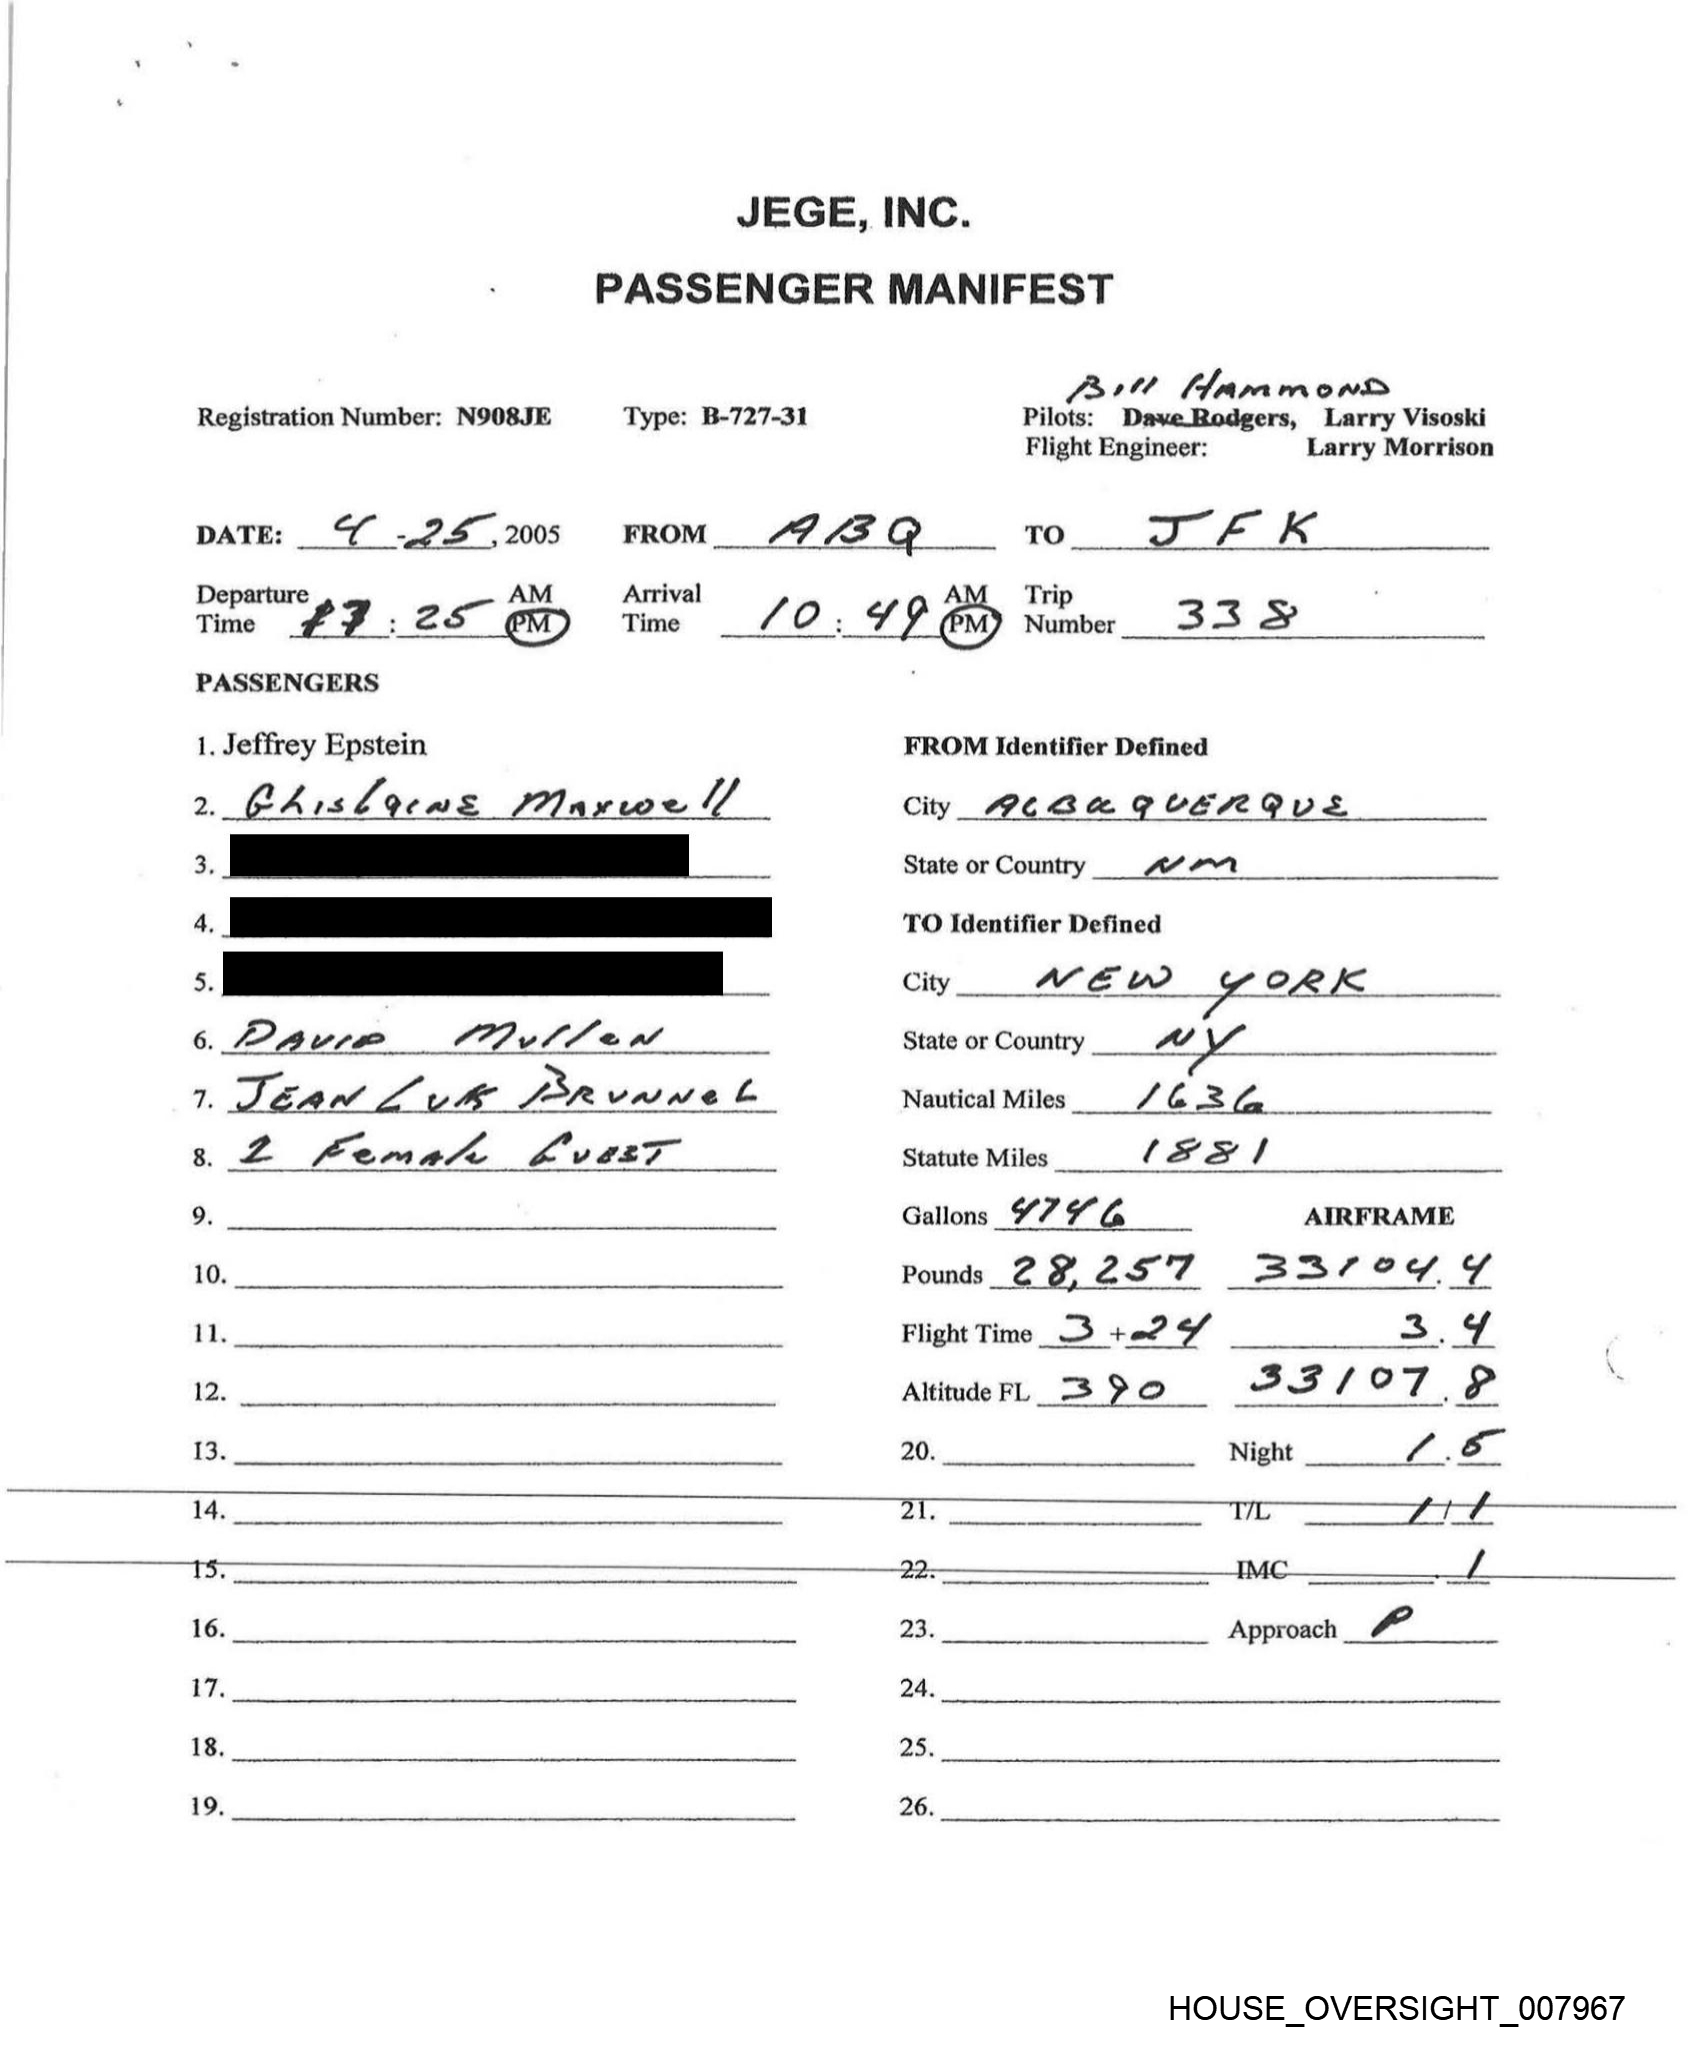 JEGE, INC.
PASSENGER MANIFEST
Bill HAMMOND
Registration Number: N908JE Type: B-727-31 Pilots: Dave Rodgers, Larry Visoski
Flight Engineer: Larry Morrison
DATE: 4 -25, 2005 FROM ABQ TO JFK
Departure AM Arrival AM Trip
Time : 25 PM Time 10 : 49 PM Number 338
PASSENGERS
1. Jeffrey Epstein FROM Identifier Defined
2. Ghislaine Maxwell City ALBUQUERQUE
3. State or Country NM
4. TO Identifier Defined
5. City NEW YORK
6. DAVID Mullen State or Country NY
7. JEAN LUK BRUNNEL Nautical Miles 1636
8. Female GUEST Statute Miles 1881
9. Gallons 4746 AIRFRAME
10. Pounds 28,257 33104.4
11. Flight Time 3 +24 3.4
12. Altitude FL 390 33107.8
13. 20. Night 1.5
14. 21. T/L 1/1
15. 22. IMC .1
16. 23. Approach P
17. 24.
18. 25.
19. 26.
HOUSE_OVERSIGHT_007967